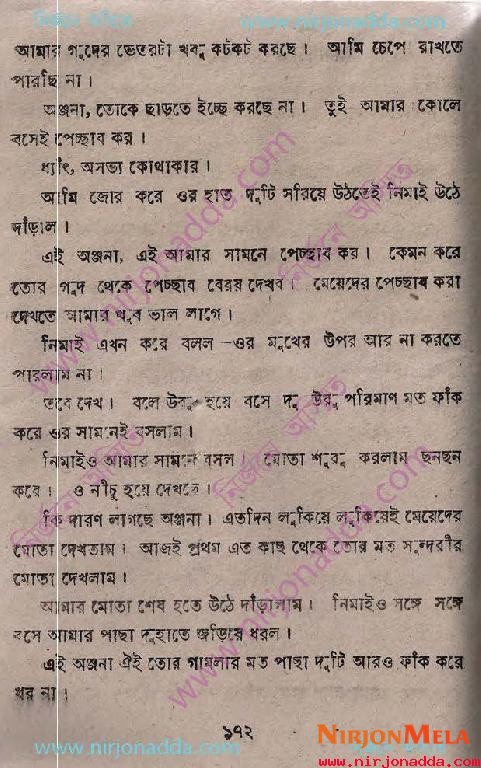 www.nirjonadda.com
আমার গুদের ভেতরটা খুব কটকট করছে। আমি চেপে রাখতে
পারছি না।
অঞ্জনা, তোকে ছাড়তে ইচ্ছে করছে না। তুই আমার কোলে
বসেই পেচ্ছাব কর।
ধ্যাৎ, অসভ্য কোথাকার।
আমি জোর করে ওর হাত দুটি সরিয়ে উঠতেই নিমাই উঠে
দাঁড়াল।
এই অঞ্জনা, এই আমার সামনে পেচ্ছাব কর। কেমন করে
তোর গুদ থেকে পেচ্ছাব বেরয় দেখব। মেয়েদের পেচ্ছাব করা
দেখতে আমার খুব ভাল লাগে।
নিমাই এমন করে বলল —ওর মুখের উপর আর না করতে
পারলাম না।
তবে দেখ। বলে উবু হয়ে বসে দু উরু পরিমাণ মত ফাঁক
করে ওর সামনেই বসলাম।
নিমাইও আমার সামনে বসল। মোতা শুরু করলাম ছনছন
করে। ও নীচু হয়ে দেখছে।
কি দারুণ লাগছে অঞ্জনা। এতদিন লুকিয়ে লুকিয়েই মেয়েদের
মোতা দেখতাম। আজই প্রথম এত কাছ থেকে তোর মত সুন্দরীর
মোতা দেখলাম।
আমার মোতা শেষ হতে উঠে দাঁড়ালাম। নিমাইও সঙ্গে সঙ্গে
বসে আমার পাছা দুহাতে জড়িয়ে ধরল।
এই অঞ্জনা ঐই তোর গামলার মত পাছা দুটি আরও ফাঁক করে
ধর না।
১৭২
NIRJONMELA
www.nirjonadda.com
www.nirjonadda.com